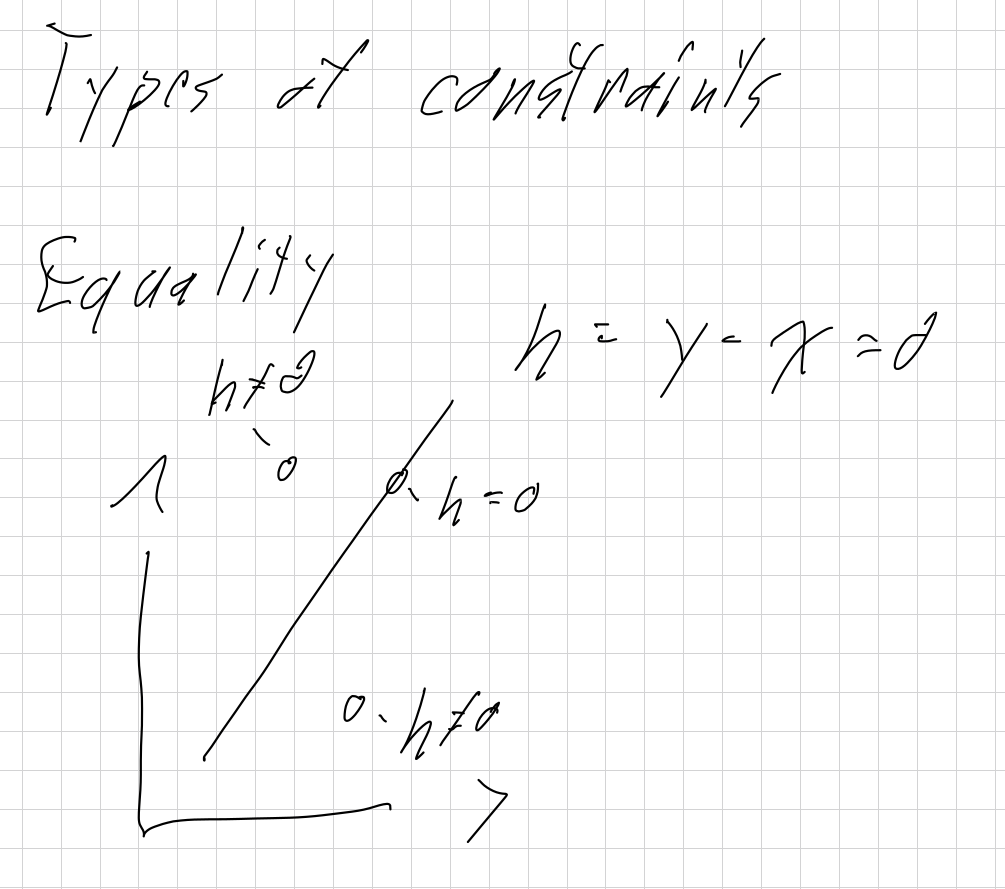 Types of constraints
Equality
h = y - x = 0
h ≠ 0
h = 0
h ≠ 0